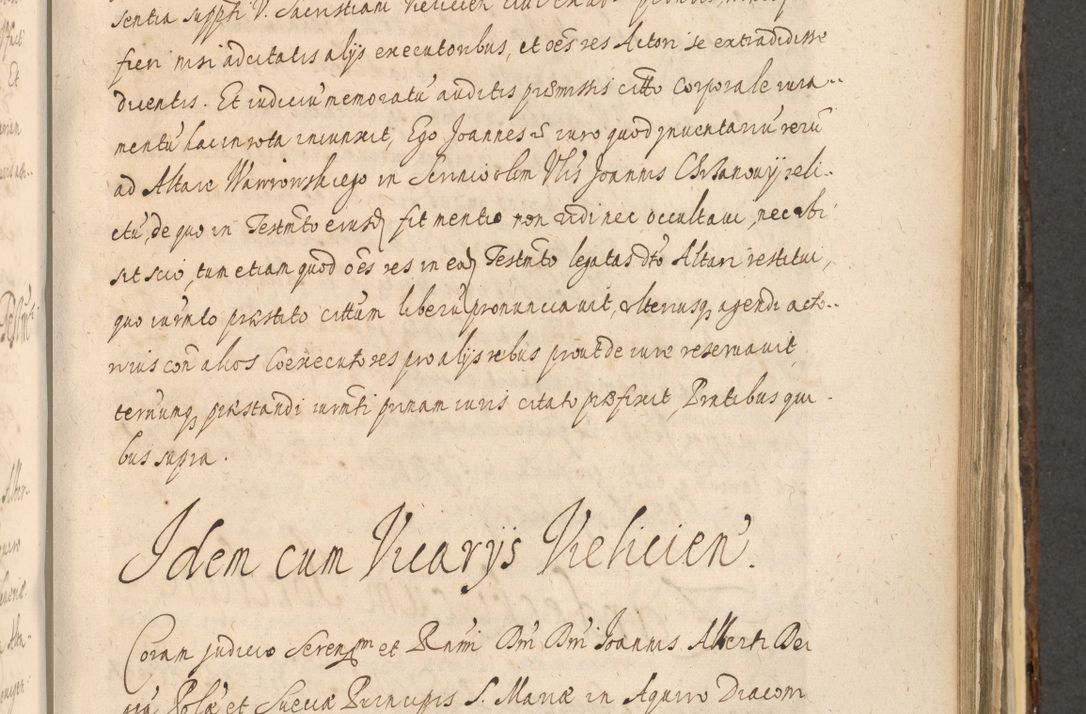 sentia supphi V. Sacristiam Vielicien
fieri nisi ad citatis alijs executoribus, et oēs res Actori se extradidisse
dicentis. Et iudiciū memoratū auditis præmissis citto corporale iura-
mentū hac in rota iniunxit, Ego Joannes iuro quod jnuentariū rerū
ad Altare Wawrowskiego in olim Joannis Chrzanowij reli-
ctū, de quo in Testmto eiusd fit mentio non vidi nec occultaui, nec ubi
sit scio, tum etiam quod oēs res in ead Testmto legatas dto Altari restitui,
quo iurnto præstito cittum liberū pronunciauit, vlteriusq agendi acto-
ri ius con alios Coexecutores pro alijs rebus prout de iure reseruauit
ternumq præstandi iurmti primam iuris citato præfixit Pntibus qui-
bus supra.
Idem cum Vicarijs Vielicien.
Coram judicio Seren et Rnmi Dni Dni Joannis Alberti Dei
Polæ et Sueciæ Principis S. Mariæ in Aquiro Diacom